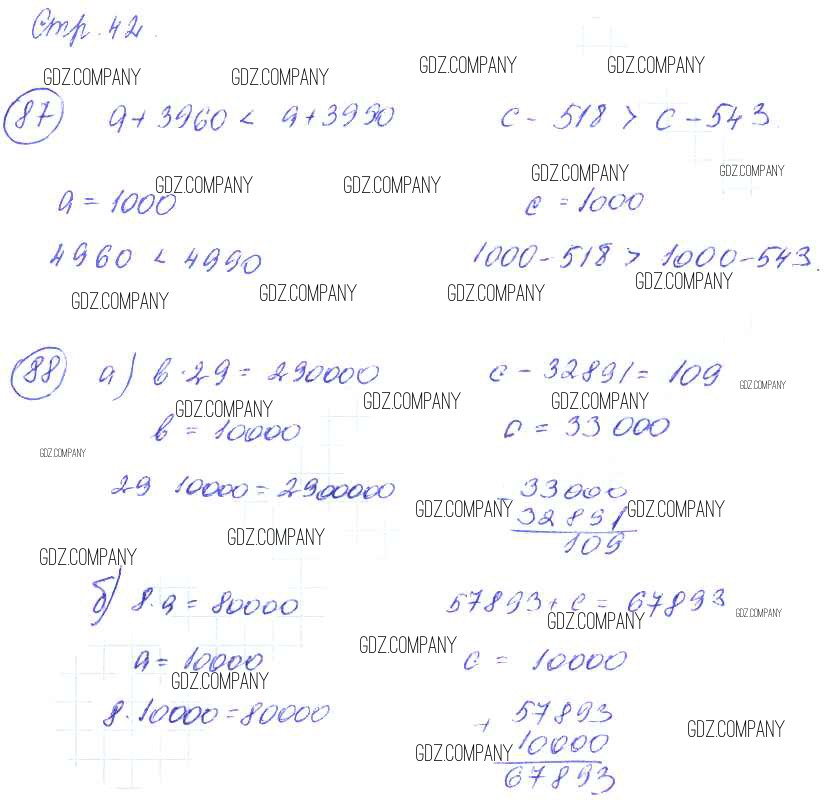 Стр. 42.
GDZ.COMPANY GDZ.COMPANY GDZ.COMPANY GDZ.COMPANY
87 a + 3960 < a + 3990 c - 518 > c - 543
GDZ.COMPANY GDZ.COMPANY GDZ.COMPANY GDZ.COMPANY
a = 1000 c = 1000
4960 < 4990 1000 - 518 > 1000 - 543.
GDZ.COMPANY GDZ.COMPANY GDZ.COMPANY GDZ.COMPANY
88 а) b · 29 = 290000 c - 32891 = 109
GDZ.COMPANY GDZ.COMPANY GDZ.COMPANY GDZ.COMPANY
b = 10000 c = 33 000
GDZ.COMPANY
29 10000 = 2900000 - 33000
GDZ.COMPANY GDZ.COMPANY
32891
GDZ.COMPANY GDZ.COMPANY
109
б) 8 · a = 80000 57893 + c = 67893
GDZ.COMPANY GDZ.COMPANY
GDZ.COMPANY
a = 10000 c = 10000
GDZ.COMPANY
8 · 10000 = 80000 + 57893
GDZ.COMPANY
10000
GDZ.COMPANY
67893